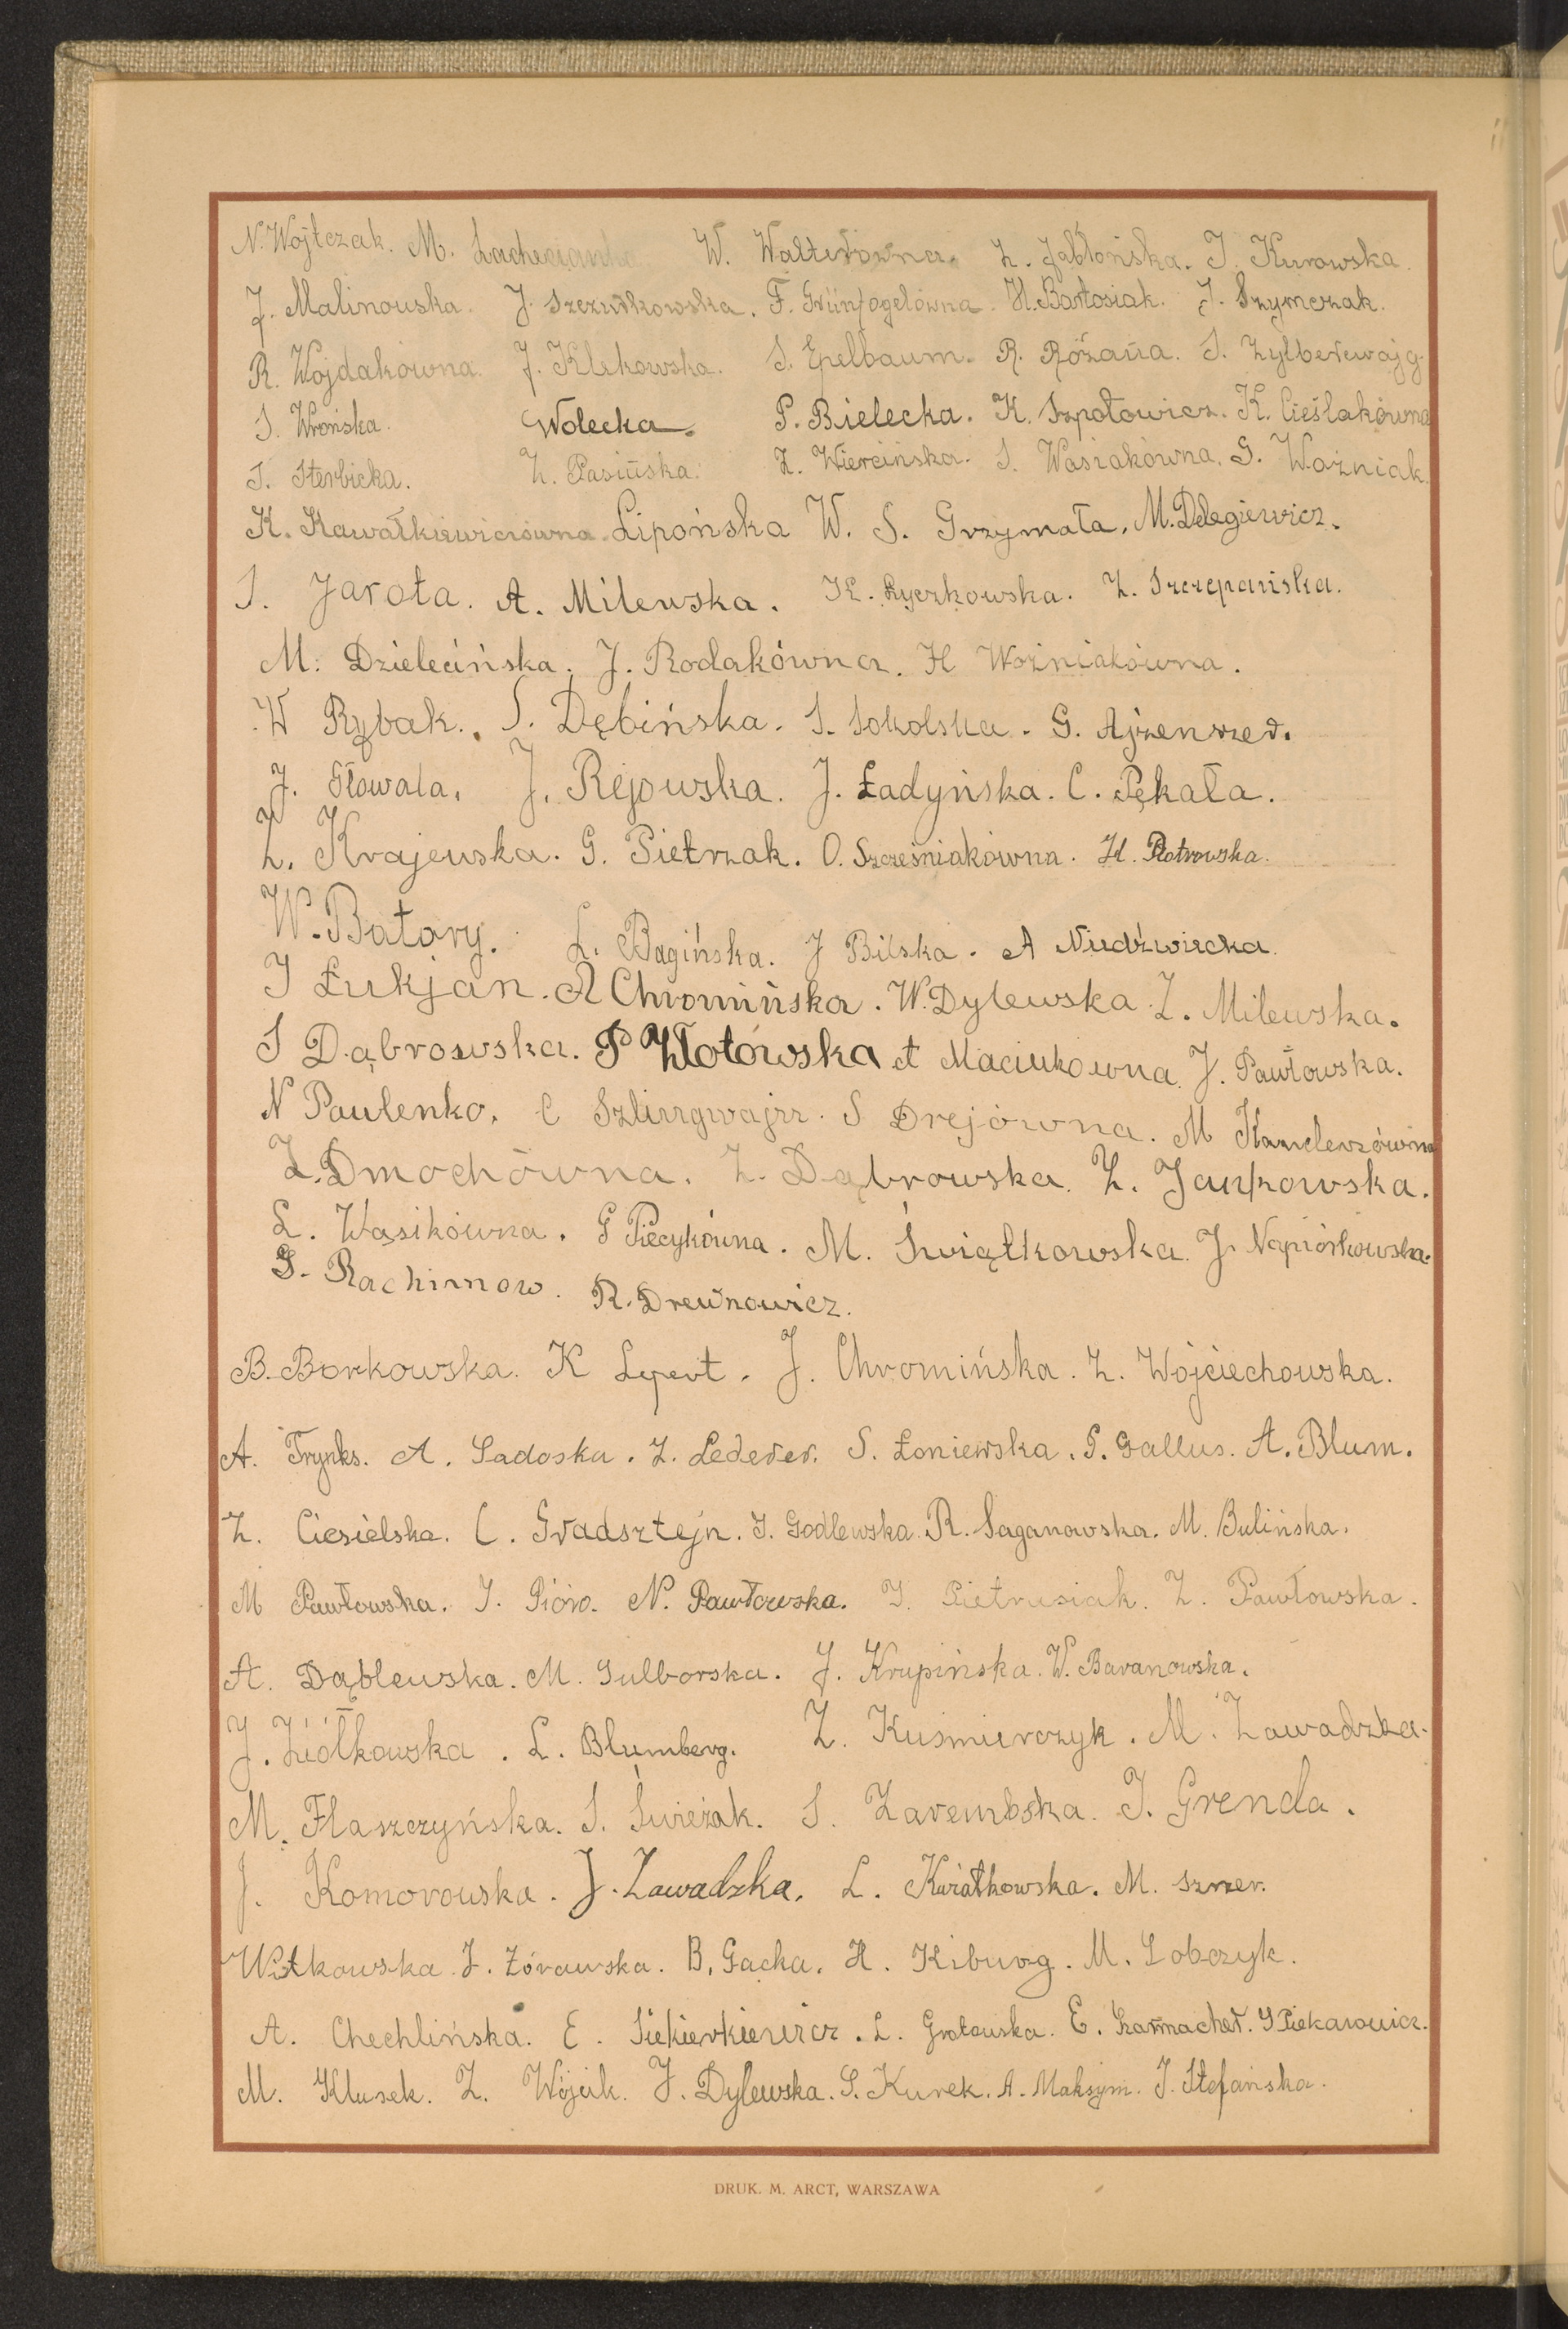 N. Wojtczak. M. W. Walterówna. Z. Jabłońska. I. Kurowska.
J. Malinowska. J. Szczutkowska. F. Grünfogelówna. H. Bartosiak. J. Szymczak.
R. Wojdakówna. J. Klekowska. S. Epelbaum. R. Różańa. S. Zylberswajg.
S. Wrońska. Wolecka. P. Bielecka. K. Szpotowicz. K. Cieślakówna
S. Sterbicka. Z. Pasińska. Z. Wiercińska. S. Wasiakówna. G. Woźniak.
K. Kawałkiewiczówna. Lipońska W. S. Grzymała. M. Delegiewicz.
S. Jarota. A. Milewska. K. Ryczkowska. Z. Szczepańska.
M. Dzielecińska. J. Rodakówna. H Woźniakówna.
W Rybak. S. Dębińska. S. Sokolska. G. Ajzenszer.
J. Słowala. J. Rejowska. J. Ładyńska. C. Pękała.
Z. Krajewska. G. Pietrzak. O. Szcześniakówna. H. Piotrowska.
W. Batory. L. Bagińska. J Bilska. A Niedźwiecka.
I Łukjan. A Chromińska. W. Dylewska. Z. Milewska.
S Dąbrowska. P Złotowska A Maciukówna J. Pawłowska.
N Paulenko. C Szlingwajn. S Drejówna. M Kanclerzówna
Z. Dmochówna. Z. Dąbrowska. Z. Jankowska.
L. Wąsikówna. G Piecykówna. M. Świątkowska. J. Napiórkowska.
G. Rachimow. R. Drewnowicz.
B. Borkowska. K Lepert. J. Chromińska. Z. Wojciechowska.
A. Trynks. A. Sadoska. Z. Lederer. S. Łoniewska. S. Gallus. A. Blum.
Z. Ciesielska. C. Gradsztejn. I. Godlewska. R. Saganowska. M. Bulińska.
M Pawłowska. I. Pióro. N. Pawłowska. I. Pietrusiak. Z. Pawłowska.
A. Dąblewska. M. Gulborska. J. Krupińska. W. Baranowska.
J. Ziółkowska. L. Blumberg. Z. Kuśmierczyk. M. Zawadzka.
M. Flaszczyńska. S. Świeżak. S. Zarembska. I. Grenda.
J. Komorowska. J. Zawadzka. L. Kwiatkowska. M. Szner.
Witkowska J. Żórawska. B. Gacka. H. Kiburg. M. Sobczyk.
A. Chechlińska. E. Siekierkiewicz. L. Grotowska. E. Szarmacher. S Piekarowicz.
M. Klusek. Z. Wójcik. J. Dylewska. S. Kurek. A. Maksym. I. Stefańska.
DRUK. M. ARCT, WARSZAWA